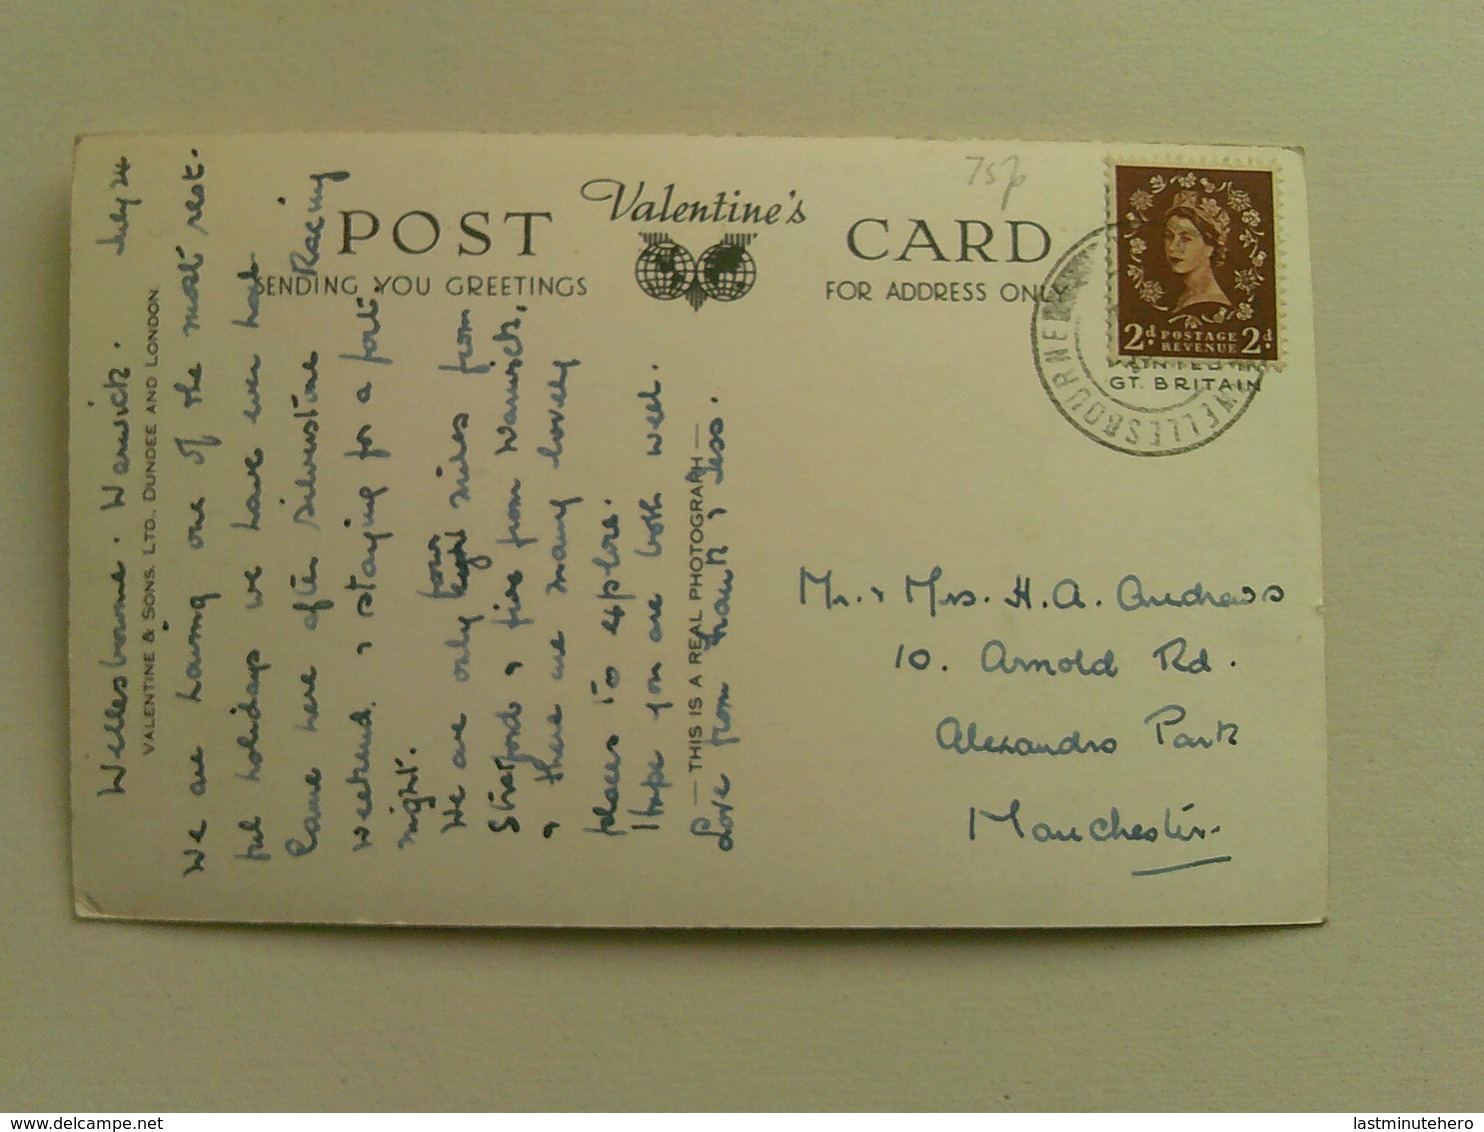 Valentine's
POST CARD
SENDING YOU GREETINGS
FOR ADDRESS ONLY
75p
2d. POSTAGE REVENUE 2d.
PRINTED IN
GT. BRITAIN
WELLESBOURNE
VALENTINE & SONS. LTD., DUNDEE AND LONDON
— THIS IS A REAL PHOTOGRAPH —
Wellesbourne. Warwick. July 24
We are having one of the most rest-
ful holidays we have ever had
Came here after silverstone Racing
weekend, & staying for a fort-
night.
We are only four miles from
Stratford & five from Warwick,
& there are many lovely
places to explore.
I hope you are both well.
Love from & Jess.
Mr. & Mrs. H. A. Andrews
10. Arnold Rd.
Alexandra Park
Manchester.
lastminutehero
www.delcampe.net